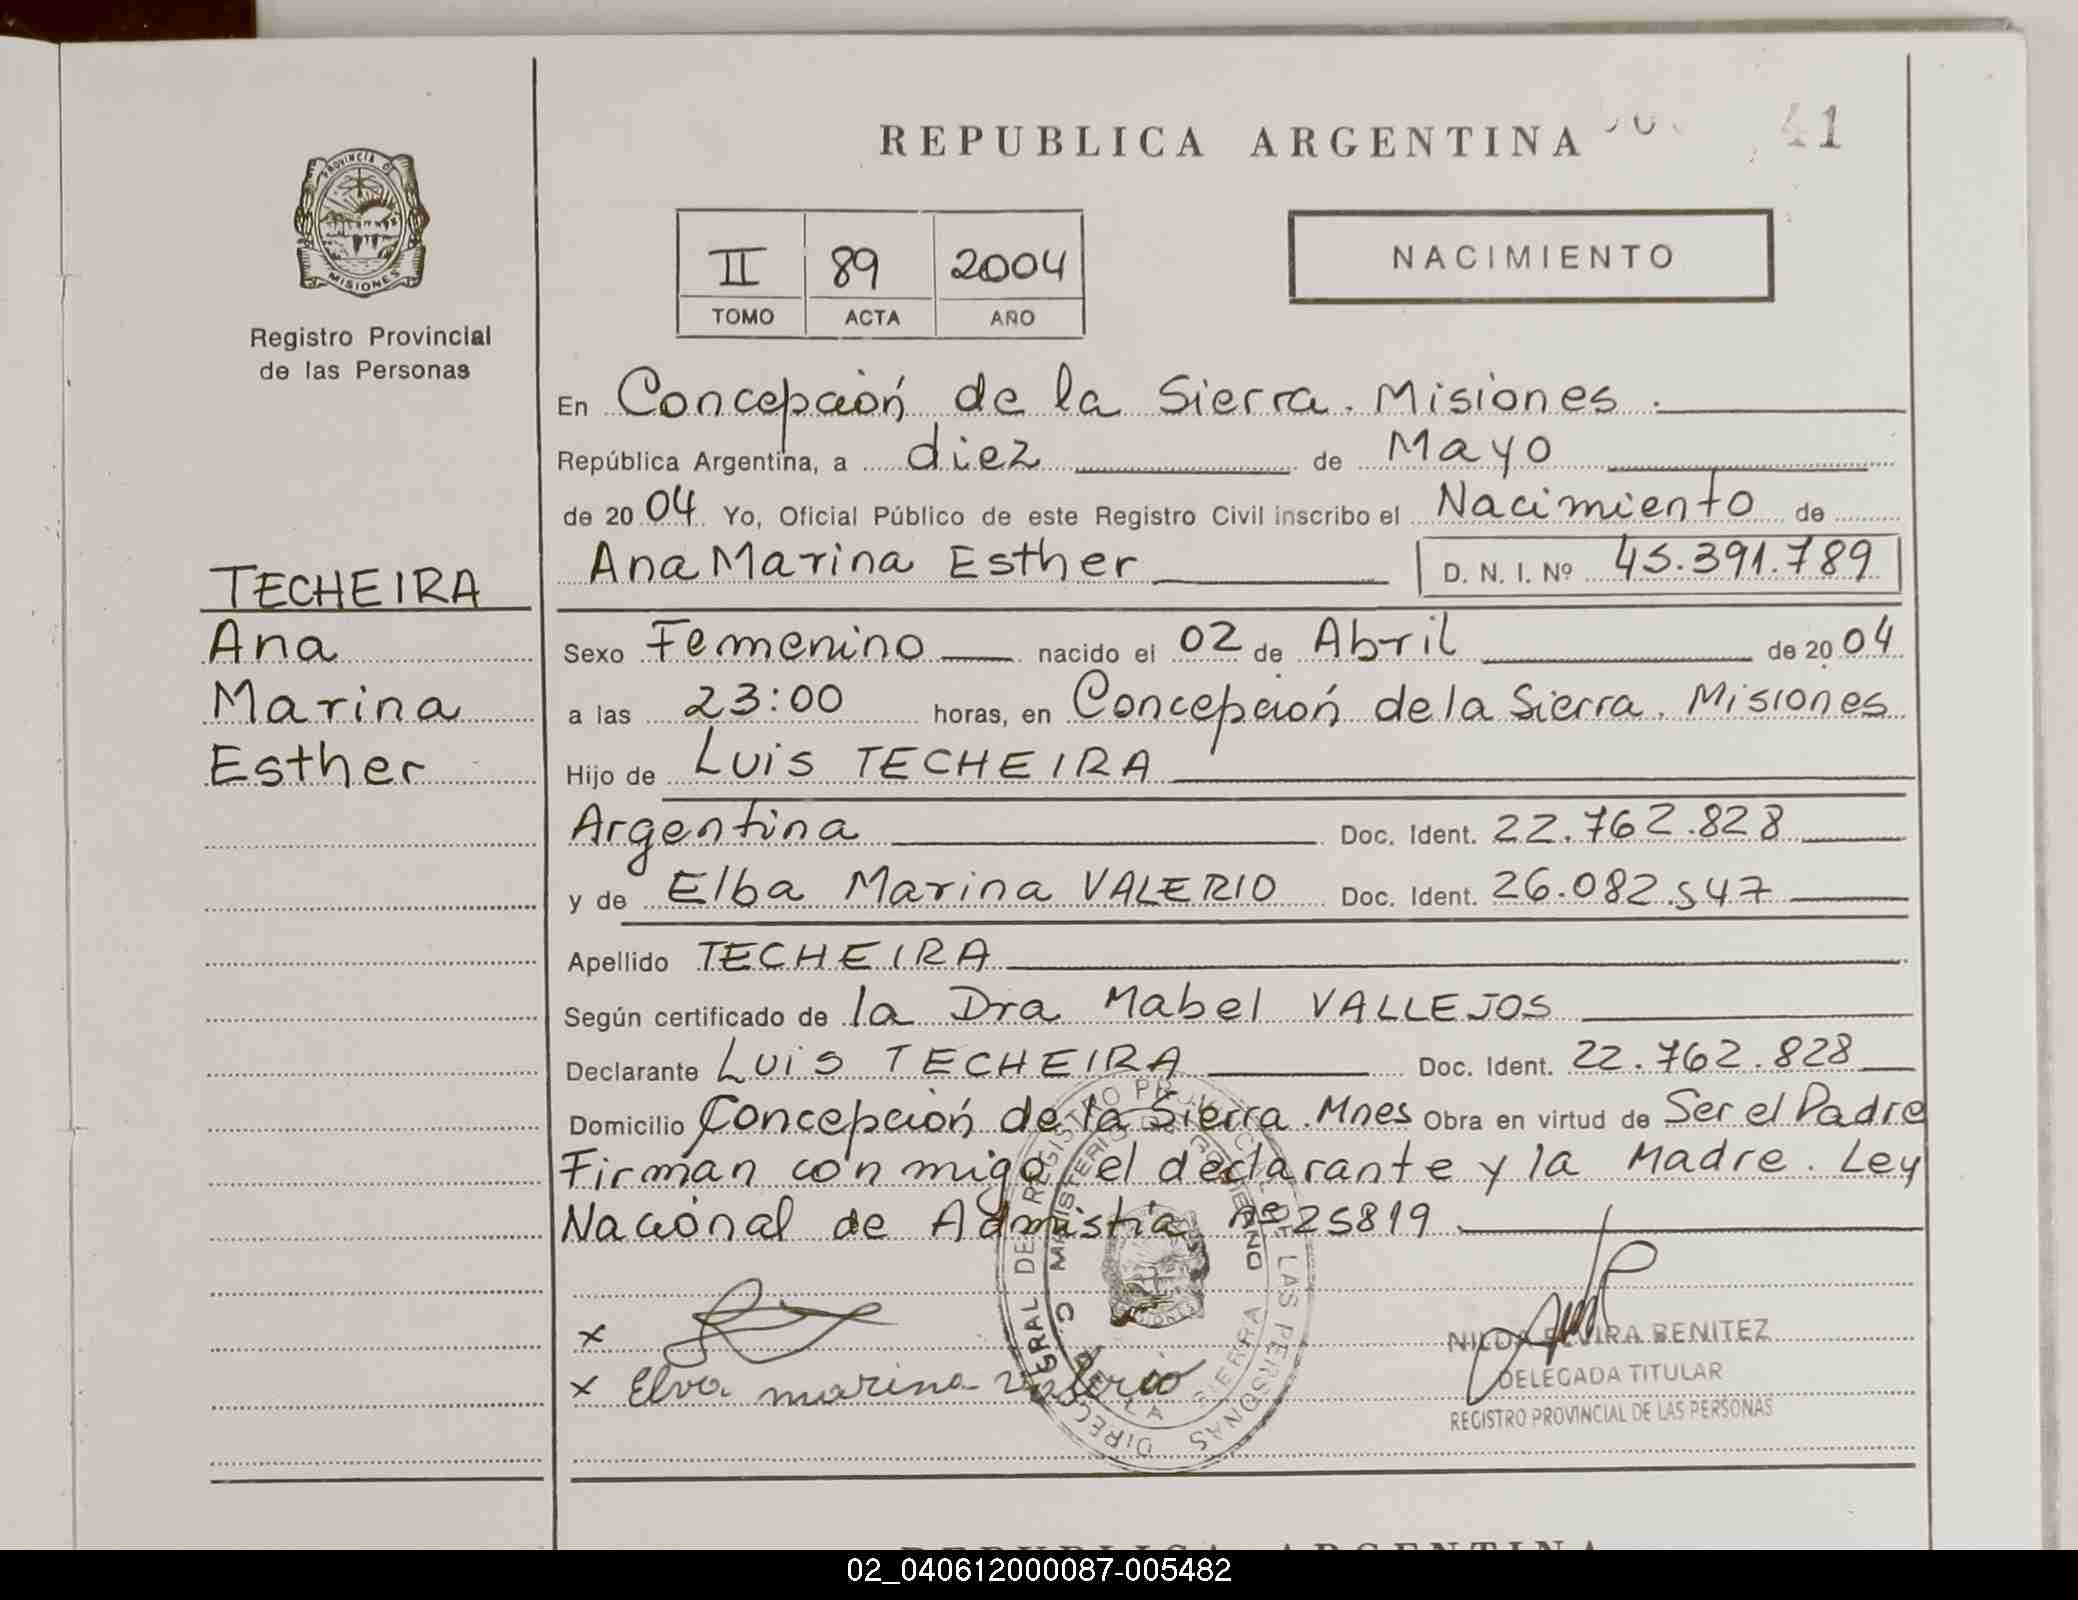 REPUBLICA ARGENTINA
41
PROVINCIA DE
MISIONES
Registro Provincial
de las Personas
II 89 2004
TOMO ACTA AÑO
NACIMIENTO
En Concepción de la Sierra. Misiones.
República Argentina, a diez de Mayo
de 2004 Yo, Oficial Público de este Registro Civil inscribo el Nacimiento de
Ana Marina Esther D. N. I. Nº 45.391.789
TECHEIRA
Ana
Marina
Esther
Sexo Femenino nacido el 02 de Abril de 2004
a las 23:00 horas, en Concepción de la Sierra. Misiones
Hijo de Luis TECHEIRA
Argentina Doc. Ident. 22.762.828
y de Elba Marina VALERIO Doc. Ident. 26.082.547
Apellido TECHEIRA
Según certificado de la Dra Mabel VALLEJOS
Declarante Luis TECHEIRA Doc. Ident. 22.762.828
Domicilio Concepción de la Sierra. Mnes Obra en virtud de Ser el Padre
Firman conmigo el declarante y la Madre. Ley
Nacional de Admistia nº 25819
x
x Elva marina valerio
NILDA ELVIRA BENITEZ
DELEGADA TITULAR
REGISTRO PROVINCIAL DE LAS PERSONAS
REPUBLICA ARGENTINA
02_040612000087-005482